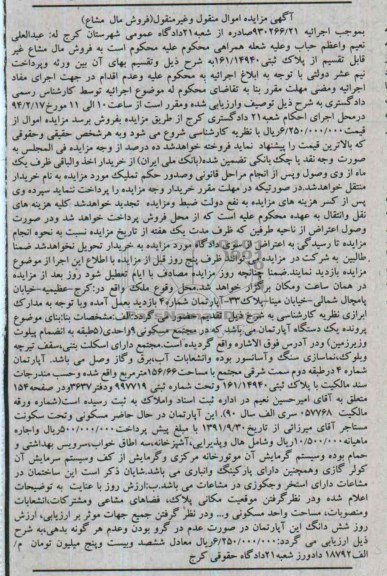 آگهی مزایده اموال منقول وغیرمنقول(فروش مال مشاع)
بموجب اجرائیه ۹۳۰۲۶۶/۲۱صادره از شعبه۲۱دادگاه عمومی شهرستان کرج له: عبدالعلی
نعیم واعظم حباب وعلیه شعله همراهی محکوم علیه محکوم است به فروش مال مشاع غیر
قابل تقسیم از پلاک ثبتی ۱۶۱/۱۴۹۴۰به شرح ذیل وتقسیم بهای آن بین ورثه وپرداخت
نیم عشر دولتی با توجه به ابلاغ اجرائیه به محکوم علیه وعدم اقدام در جهت اجرای مفاد
اجرائیه ومضی مهلت مقرر بنا به تقاضای محکوم له موضوع اجرائیه توسط کارشناس رسمی
دادگستری به شرح ذیل توصیف وارزیابی شده ومقرر است از ساعت۱۰الی ۱۱ مورخ۹۴/۲/۱۷
درمحل اجرای احکام شعبه ۲۱ دادگستری کرج از طریق مزایده بفروش برسد مزایده اموال از
قیمت۶/۲۵۰/۰۰۰/۰۰۰ریال با نظریه کارشناسی شروع می شود وبه هرشخص حقیقی وحقوقی
که بالاترین قیمت را پیشنهاد نماید فروخته خواهدشد ده درصد از وجه مزایده فی المجلس به
صورت وجه نقد یا چک بانکی تضمین شده(بانک ملی ایران) از خریدار اخذ والباقی ظرف یک
ماه از وی وصول وپس از انجام مراحل قانونی وصدور حکم تملیک مورد مزایده به نام خریدار
منتقل خواهدشد.در صورتیکه در مهلت مقرر خریدار وجه مزایده را پرداخت ننماید سپرده وی
پس از کسر هزینه های مزایده به نفع دولت ضبط ومزایده تجدید خواهدشد کلیه هزینه های
نقل وانتقال به عهده محکوم علیه است که از محل فروش پرداخت خواهد شد ودر صورت
وصول اعتراض از ناحیه طرفین که ظرف مدت یک هفته از تاریخ مزایده نسبت به نحوه انجام
مزایده تا رسیدگی به اعتراض از سوی دادگاه مورد مزایده به خریدار تحویل نخواهدشد ضمنا
طالبین به شرکت در مزایده ظرف پنج روز قبل از مزایده با اطلاع این اجرا از موضوع
مزایده بازدید نمایند.ضمنا چنانچه روز مزایده مصادف با ایام تعطیل شود روز بعد از مزایده
در همان ساعت ومکان برگزار خواهد شد.محل وقوع ملک واقع در:کرج-عظیمیه-خیابان
پامچال شمالی-خیابان مینا-پلاک۳۳-آپارتمان شماره۴ بازدید بعمل آمده وبا توجه به مدارک
ابرازی نظریه کارشناسی به شرح ذیل تقدیم حضور می گردد:الف.مشخصات بنا:بنای موضوع
پرونده یک دستگاه آپارتمان می باشد که در مجتمع مسکونی۹واحدی(۵طبقه به انضمام پیلوت
وزیرزمین) ودر آدرس فوق الاشاره واقع گردیده است.مجتمع دارای اسکلت بتنی،سقف تیرچه
وبلوک،نماسازی سنگ وآسانسور بوده وانشعابات آب،برق وگاز وصل می باشد. آپارتمان
شماره ۴ درطبقه دوم سمت شرقی مجتمع با مساحت۱۵۶/۶۶مترمربع واقع شده وحسب مندرجات
سند مالکیت با پلاک ثبتی ۱۶۱/۱۴۹۴۰ وتحت شماره ثبتی ۹۹۷۷۱۹ ودفتر۳۶۳۷ودر صفحه۱۵۴
متعلق به آقای امیرحسین نعیم در اداره ثبت اسناد واملاک به ثبت رسیده است(شماره ورقه
مالکیت ۰۵۷۷۶۸ سری الف سال ۹۰). این آپارتمان در حال حاضر مسکونی وتحت سکونت
مستأجر آقای میرزائی از تاریخ ۱۳۹۱/۹/۳۰ با مبلغ پیش پرداخت۵۰۰/۰۰۰/۰۰۰ریال واجاره
ماهیانه۱۰/۵۰۰/۰۰۰ریال وشامل هال وپذیرایی،آشپزخانه،سه اطاق خواب،سرویس بهداشتی و
حمام بوده وسیستم گرمایش آن موتورخانه مرکزی وگرمایش از کف وسیستم سرمایش آن
کولر گازی وهمچنین دارای پارکینگ وانباری می باشد.شایان ذکر است این ساختمان در
مشاعات دارای استخر وجکوزی در مشاعات می باشد.ب:ارزش روز با عنایت به توضیحات
اعلام شده ودر نظرگرفتن موقعیت مکانی پلاک، فضاهای مشاعی ومشترکات،انشعابات
ومنصوبات، مساحت واحد مسکونی و... ودر نظر گرفتن جمیع جهات موثر بر ارزیابی، ارزش
روز شش دانگ این آپارتمان در صورت عدم در گرو بودن وعدم هر گونه بدهی،به شرح
ذیل ارزیابی می گردد:۶/۲۵۰/۰۰۰/۰۰۰ریال معادل ششصد وبیست وپنج میلیون تومان م/
الف ۱۸۷۹۲ دادورز شعبه۲۱دادگاه حقوقی کرج